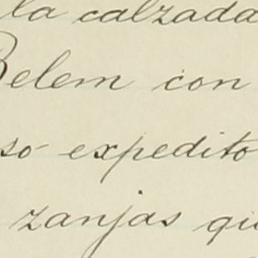 la calzada
Belem con
so expedito
zanjas qu